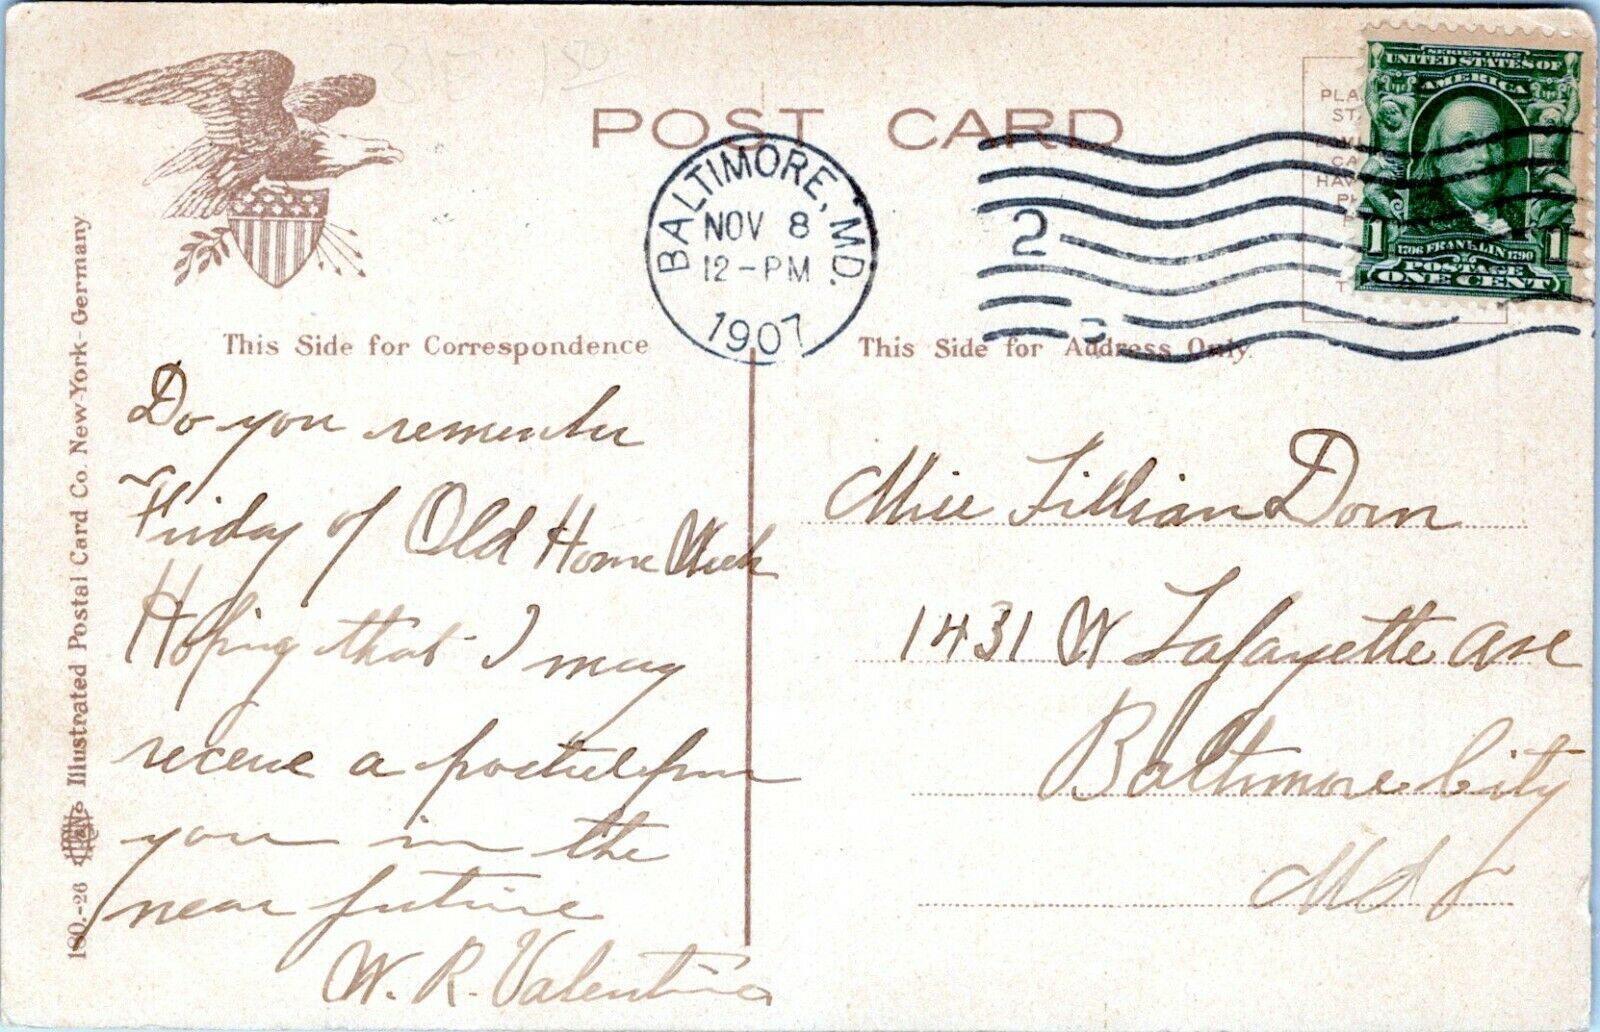 POST CARD
BALTIMORE, MD.
NOV 8
12-PM
1907
2
SERIES 1902
UNITED STATES OF
AMERICA
1 1706 FRANKLIN 1790 1
POSTAGE
ONE CENT
This Side for Correspondence
This Side for Address Only.
Do you remember
Friday of Old Home Week
Hoping that I may
receive a postal from
you in the
near future
W. R. Valentine
Miss Lillian Dorn
1431 W Lafayette Ave
Baltimore City
Md
180.-26 Illustrated Postal Card Co. New-York - Germany